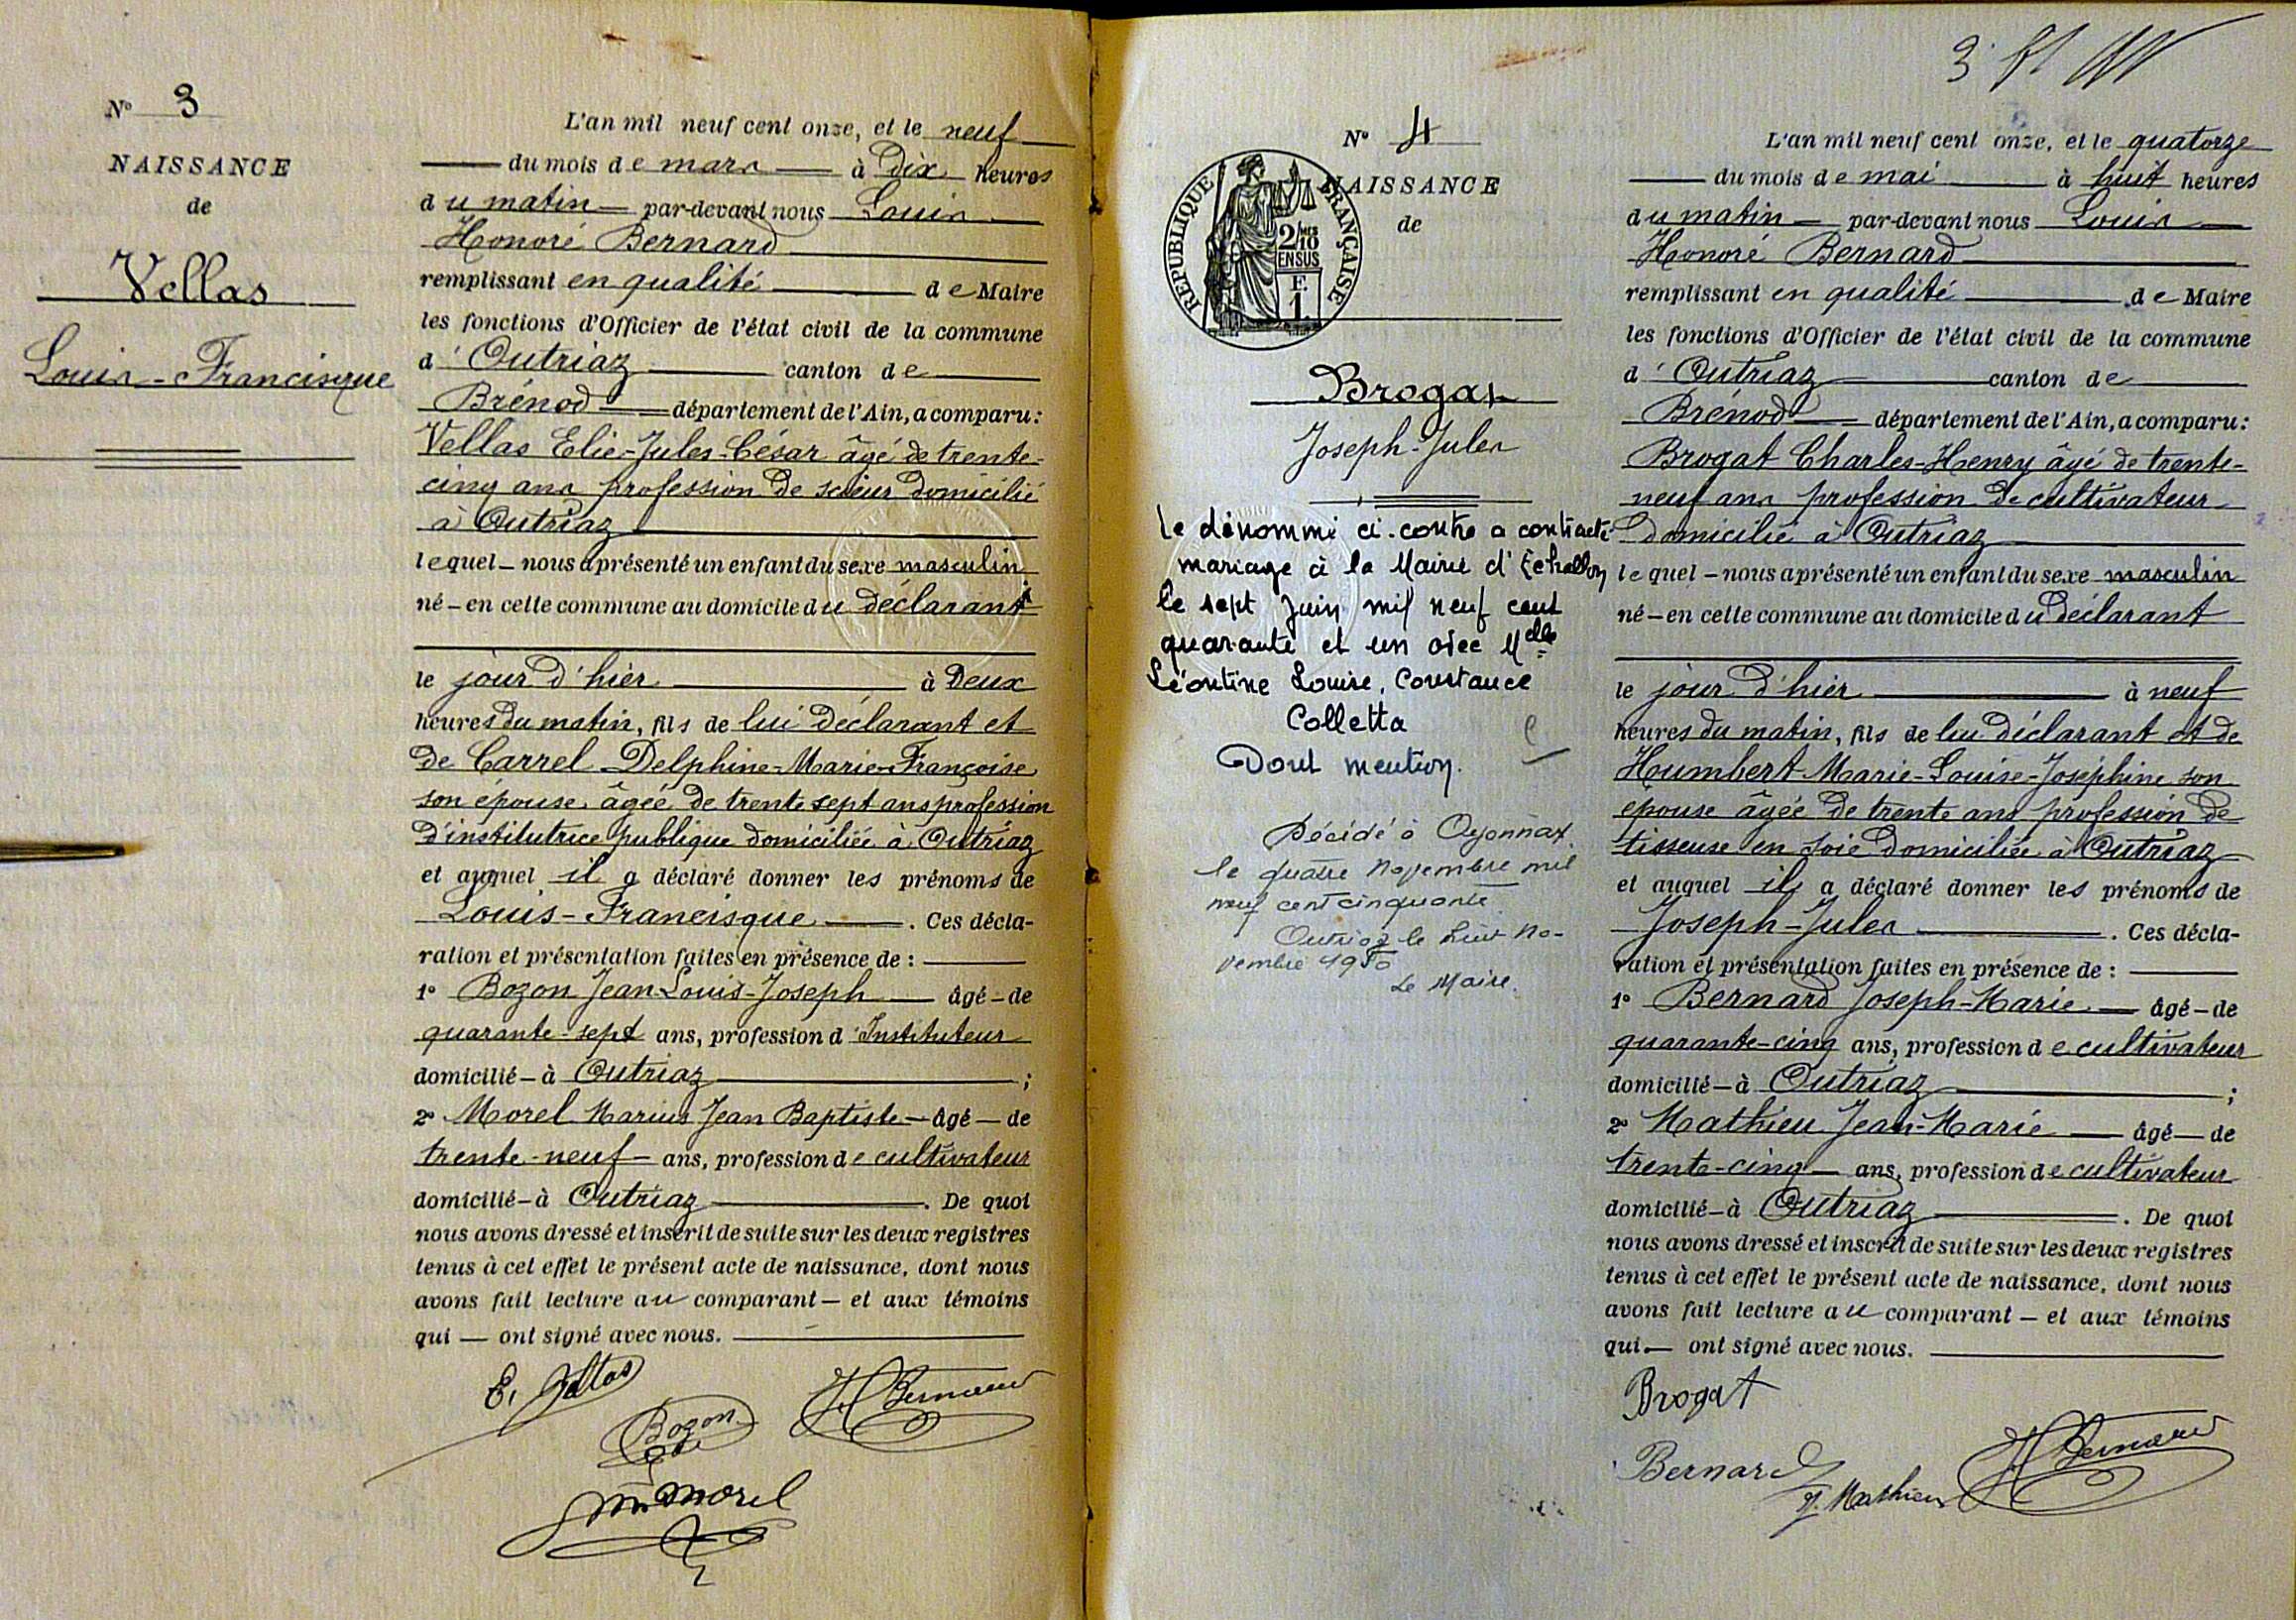 N° 3
NAISSANCE
de
Vellas
Louis-Francisque
L'an mil neuf cent onze, et le neuf
du mois de mars à Dix heures
du matin par-devant nous Louis
Honoré Bernard
remplissant en qualité de Maire
les fonctions d'Officier de l'état civil de la commune
d'Outriaz canton de
Brénod département de l'Ain, a comparu :
Vellas Elie-Jules-César âgé de trente-
cinq ans profession de scieur domicilié
à Outriaz
lequel nous a présenté un enfant du sexe masculin
né en cette commune au domicile du déclarant
le jour d'hier à Deux
heures du matin, fils de lui déclarant et
de Carrel Delphine-Marie-Françoise
son épouse, âgée de trente sept ans profession
d'institutrice publique domiciliée à Outriaz
et auquel il a déclaré donner les prénoms de
Louis-Francisque. Ces décla-
ration et présentation faites en présence de :
1° Bozon Jean-Louis-Joseph âgé de
quarante-sept ans, profession d'Instituteur
domicilié à Outriaz ;
2° Morel Marius Jean Baptiste âgé de
trente-neuf ans, profession de cultivateur
domicilié à Outriaz. De quoi
nous avons dressé et inscrit de suite sur les deux registres
tenus à cet effet le présent acte de naissance, dont nous
avons fait lecture au comparant et aux témoins
qui ont signé avec nous.
E. Vellas
Bozon
H Bernard
M. Morel
N° 4
NAISSANCE
de
RÉPUBLIQUE FRANÇAISE
2/10 MES
EN SUS
F.
1
Brogat
Joseph-Jules
Le dénommé ci-contre a contracté
mariage à la Mairie d'Echallon
le sept Juin mil neuf cent
quarante et un avec Melle
Léontine Louise, Constance
Colletta
Dont mention.
Décédé à Oyonnax
le quatre Novembre mil
neuf cent cinquante
Outriaz le huit No-
vembre 1950
Le Maire.
L'an mil neuf cent onze, et le quatorze
du mois de mai à huit heures
du matin par-devant nous Louis
Honoré Bernard
remplissant en qualité de Maire
les fonctions d'Officier de l'état civil de la commune
d'Outriaz canton de
Brénod département de l'Ain, a comparu :
Brogat Charles-Henry âgé de trente-
neuf ans profession de cultivateur
domicilié à Outriaz
lequel nous a présenté un enfant du sexe masculin
né en cette commune au domicile du déclarant
le jour d'hier à neuf
heures du matin, fils de lui déclarant et de
Humbert Marie-Louise-Joséphine son
épouse âgée de trente ans profession de
tisseuse en soie domiciliée à Outriaz
et auquel il a déclaré donner les prénoms de
Joseph-Jules. Ces décla-
ration et présentation faites en présence de :
1° Bernard Joseph-Marie âgé de
quarante-cinq ans, profession de cultivateur
domicilié à Outriaz ;
2° Mathieu Jean-Marie âgé de
trente-cinq ans, profession de cultivateur
domicilié à Outriaz. De quoi
nous avons dressé et inscrit de suite sur les deux registres
tenus à cet effet le présent acte de naissance, dont nous
avons fait lecture au comparant et aux témoins
qui ont signé avec nous.
Brogat
Bernard
J. Mathieu
H Bernard